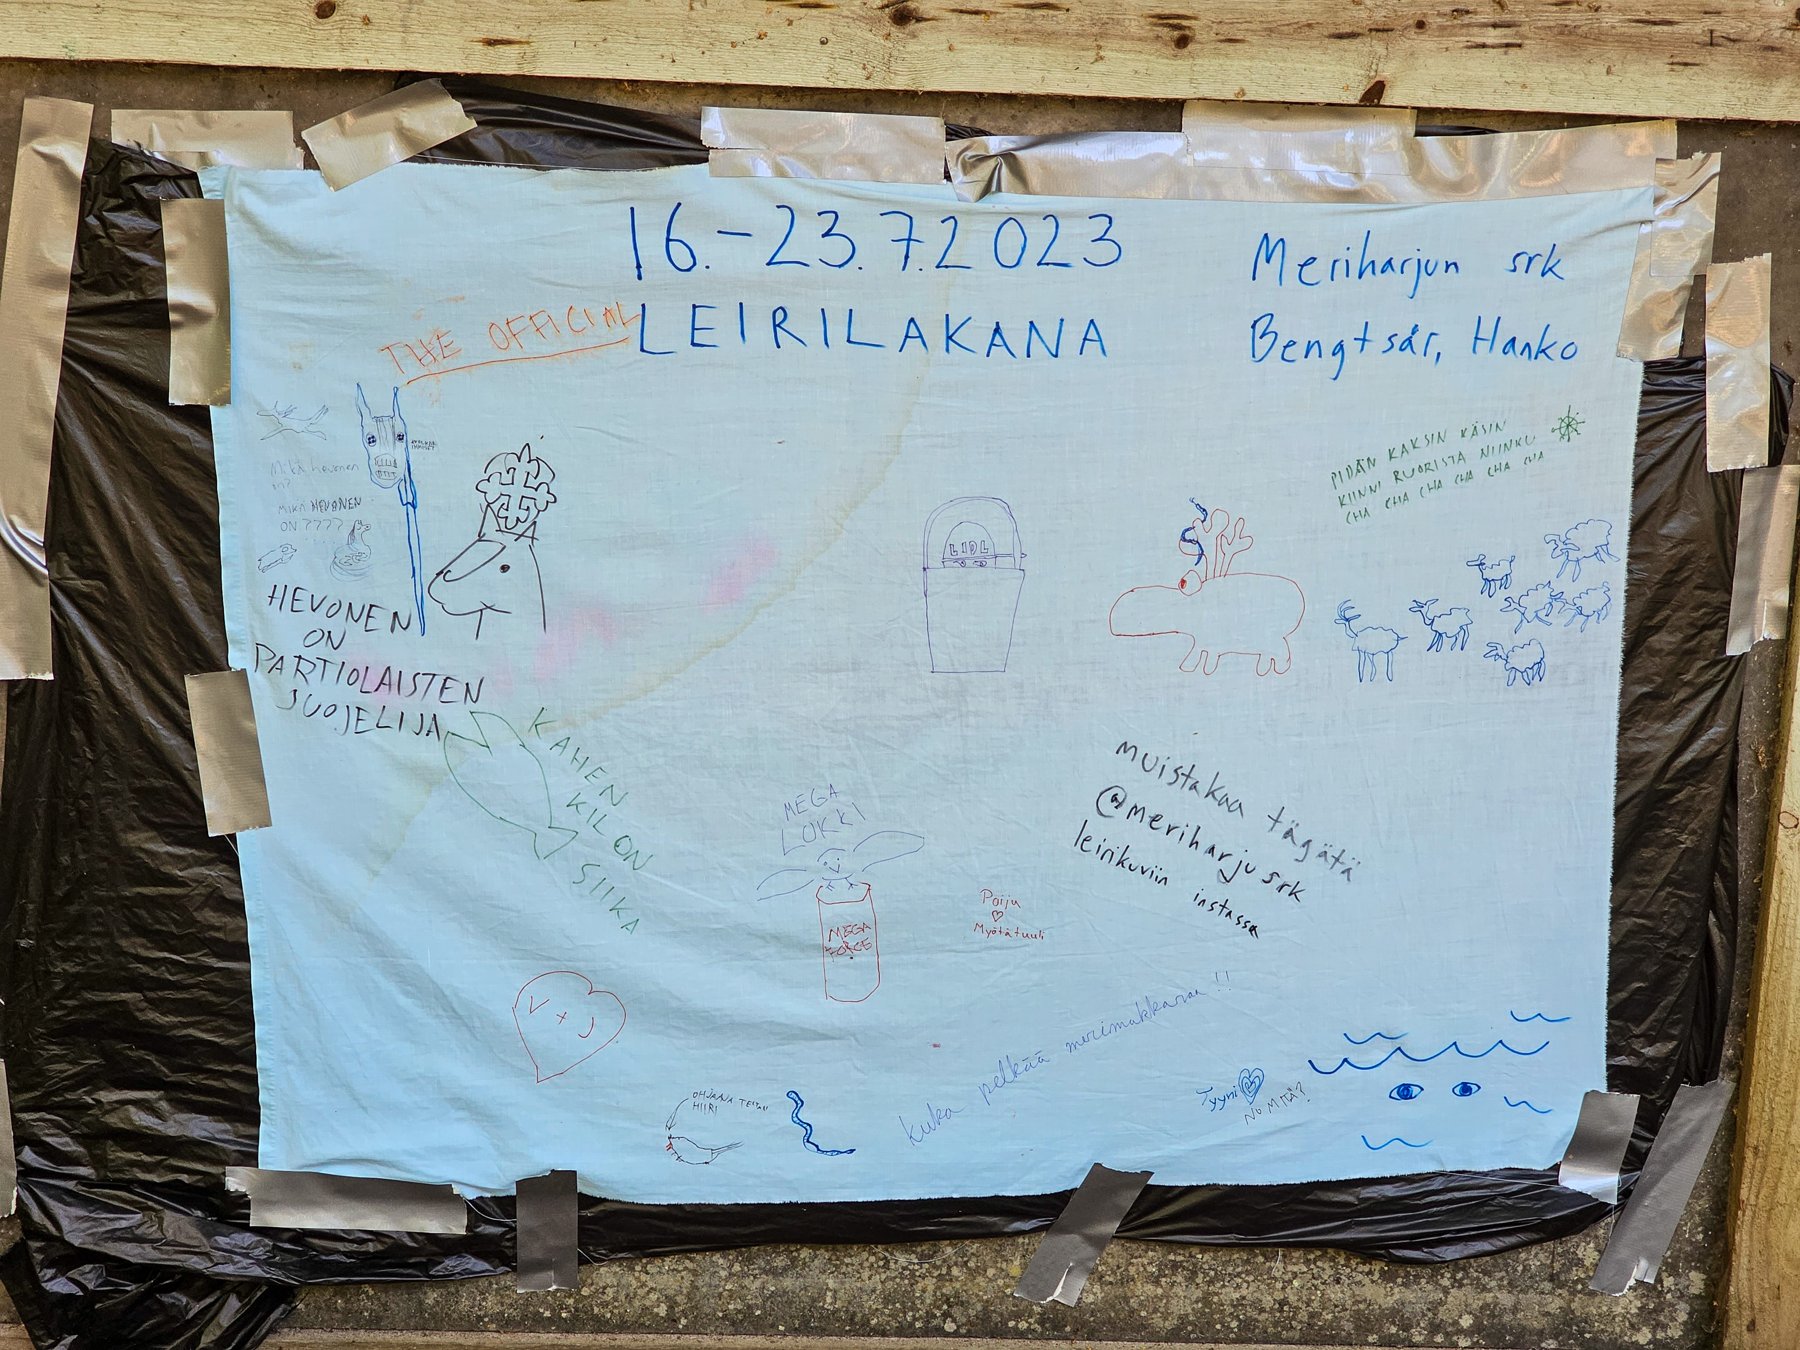 16.-23.7.2023
THE OFFICIAL LEIRILAKANA
Meriharjun srk
Bengtsår, Hanko
Mikä hevonen
on?
MIKÄ HEVONEN
ON ????
HEVONEN
ON
PARTIOLAISTEN
SUOJELIJA
LIDL
PIDÄN KAKSIN KÄSIN
KIINNI RUORISTA NIINKU
CHA CHA CHA CHA CHA
KAHEN
KILON
SIIKA
MEGA
LOKKI
MEGA
FORCE
Poiju
♡
Myötätuuli
muistakaa tägätä
@meriharjusrk
leirikuviin instassa
V + J
OHJAAVA
HIIRI
kuka pelkää merimakkaraa !!
Tyyni
NO MITÄ?